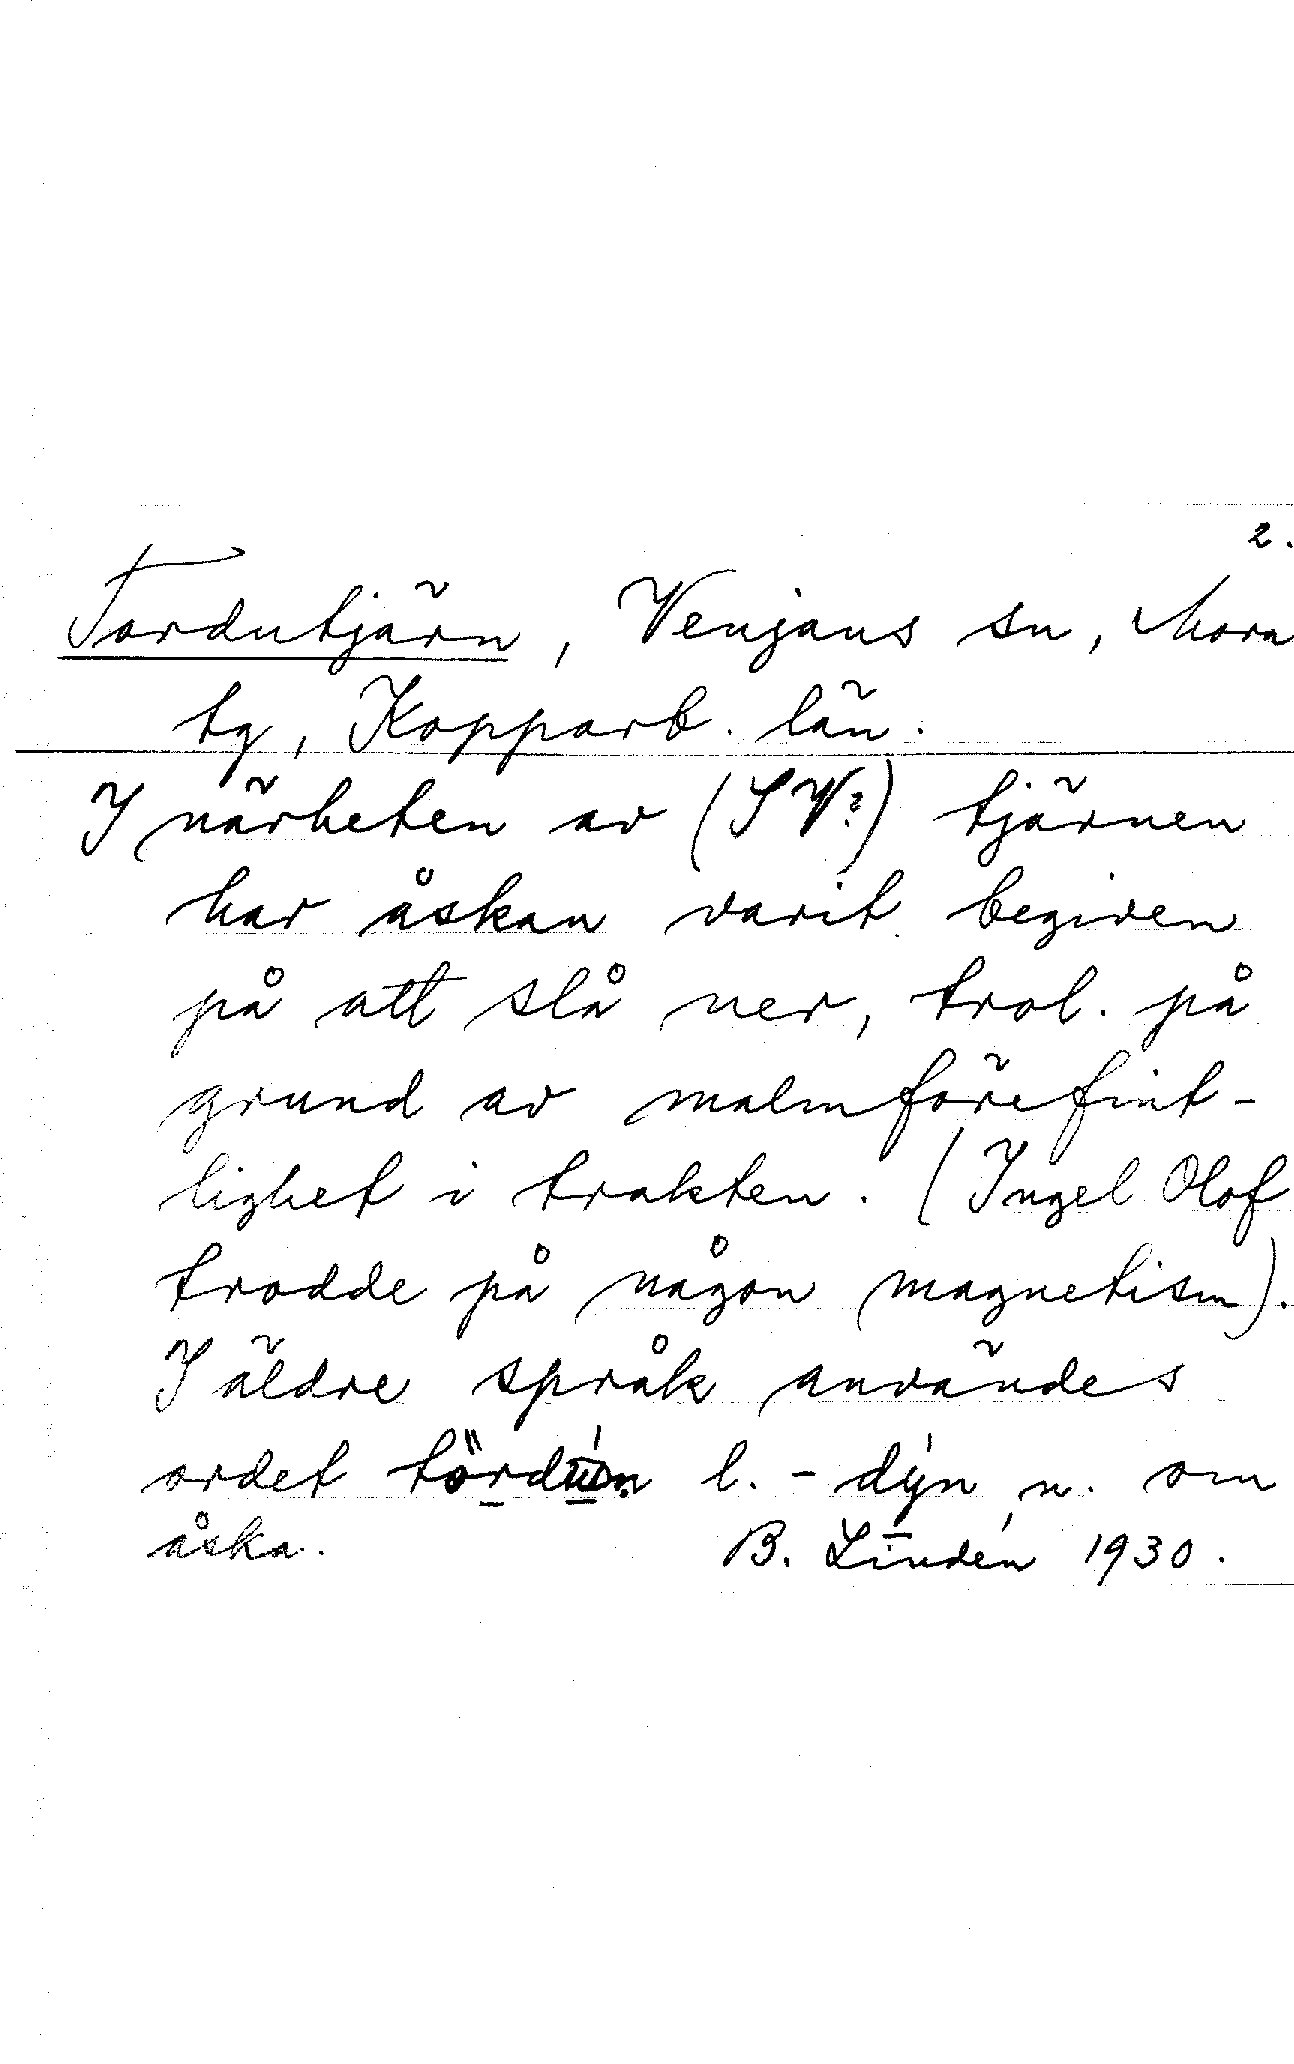 2.
Tordutjärn, Venjans sn, Mora
tg, Kopparb. län.
I närheten av (SV?) tjärnen
har åskan varit begiven
på att slå ner, trol. på
grund av malmförefint-
lighet i trakten. (Ingel Olof
trodde på någon magnetism).
I äldre språk användes
ordet l. - dýn n. om
åska. B. Lindén 1930.